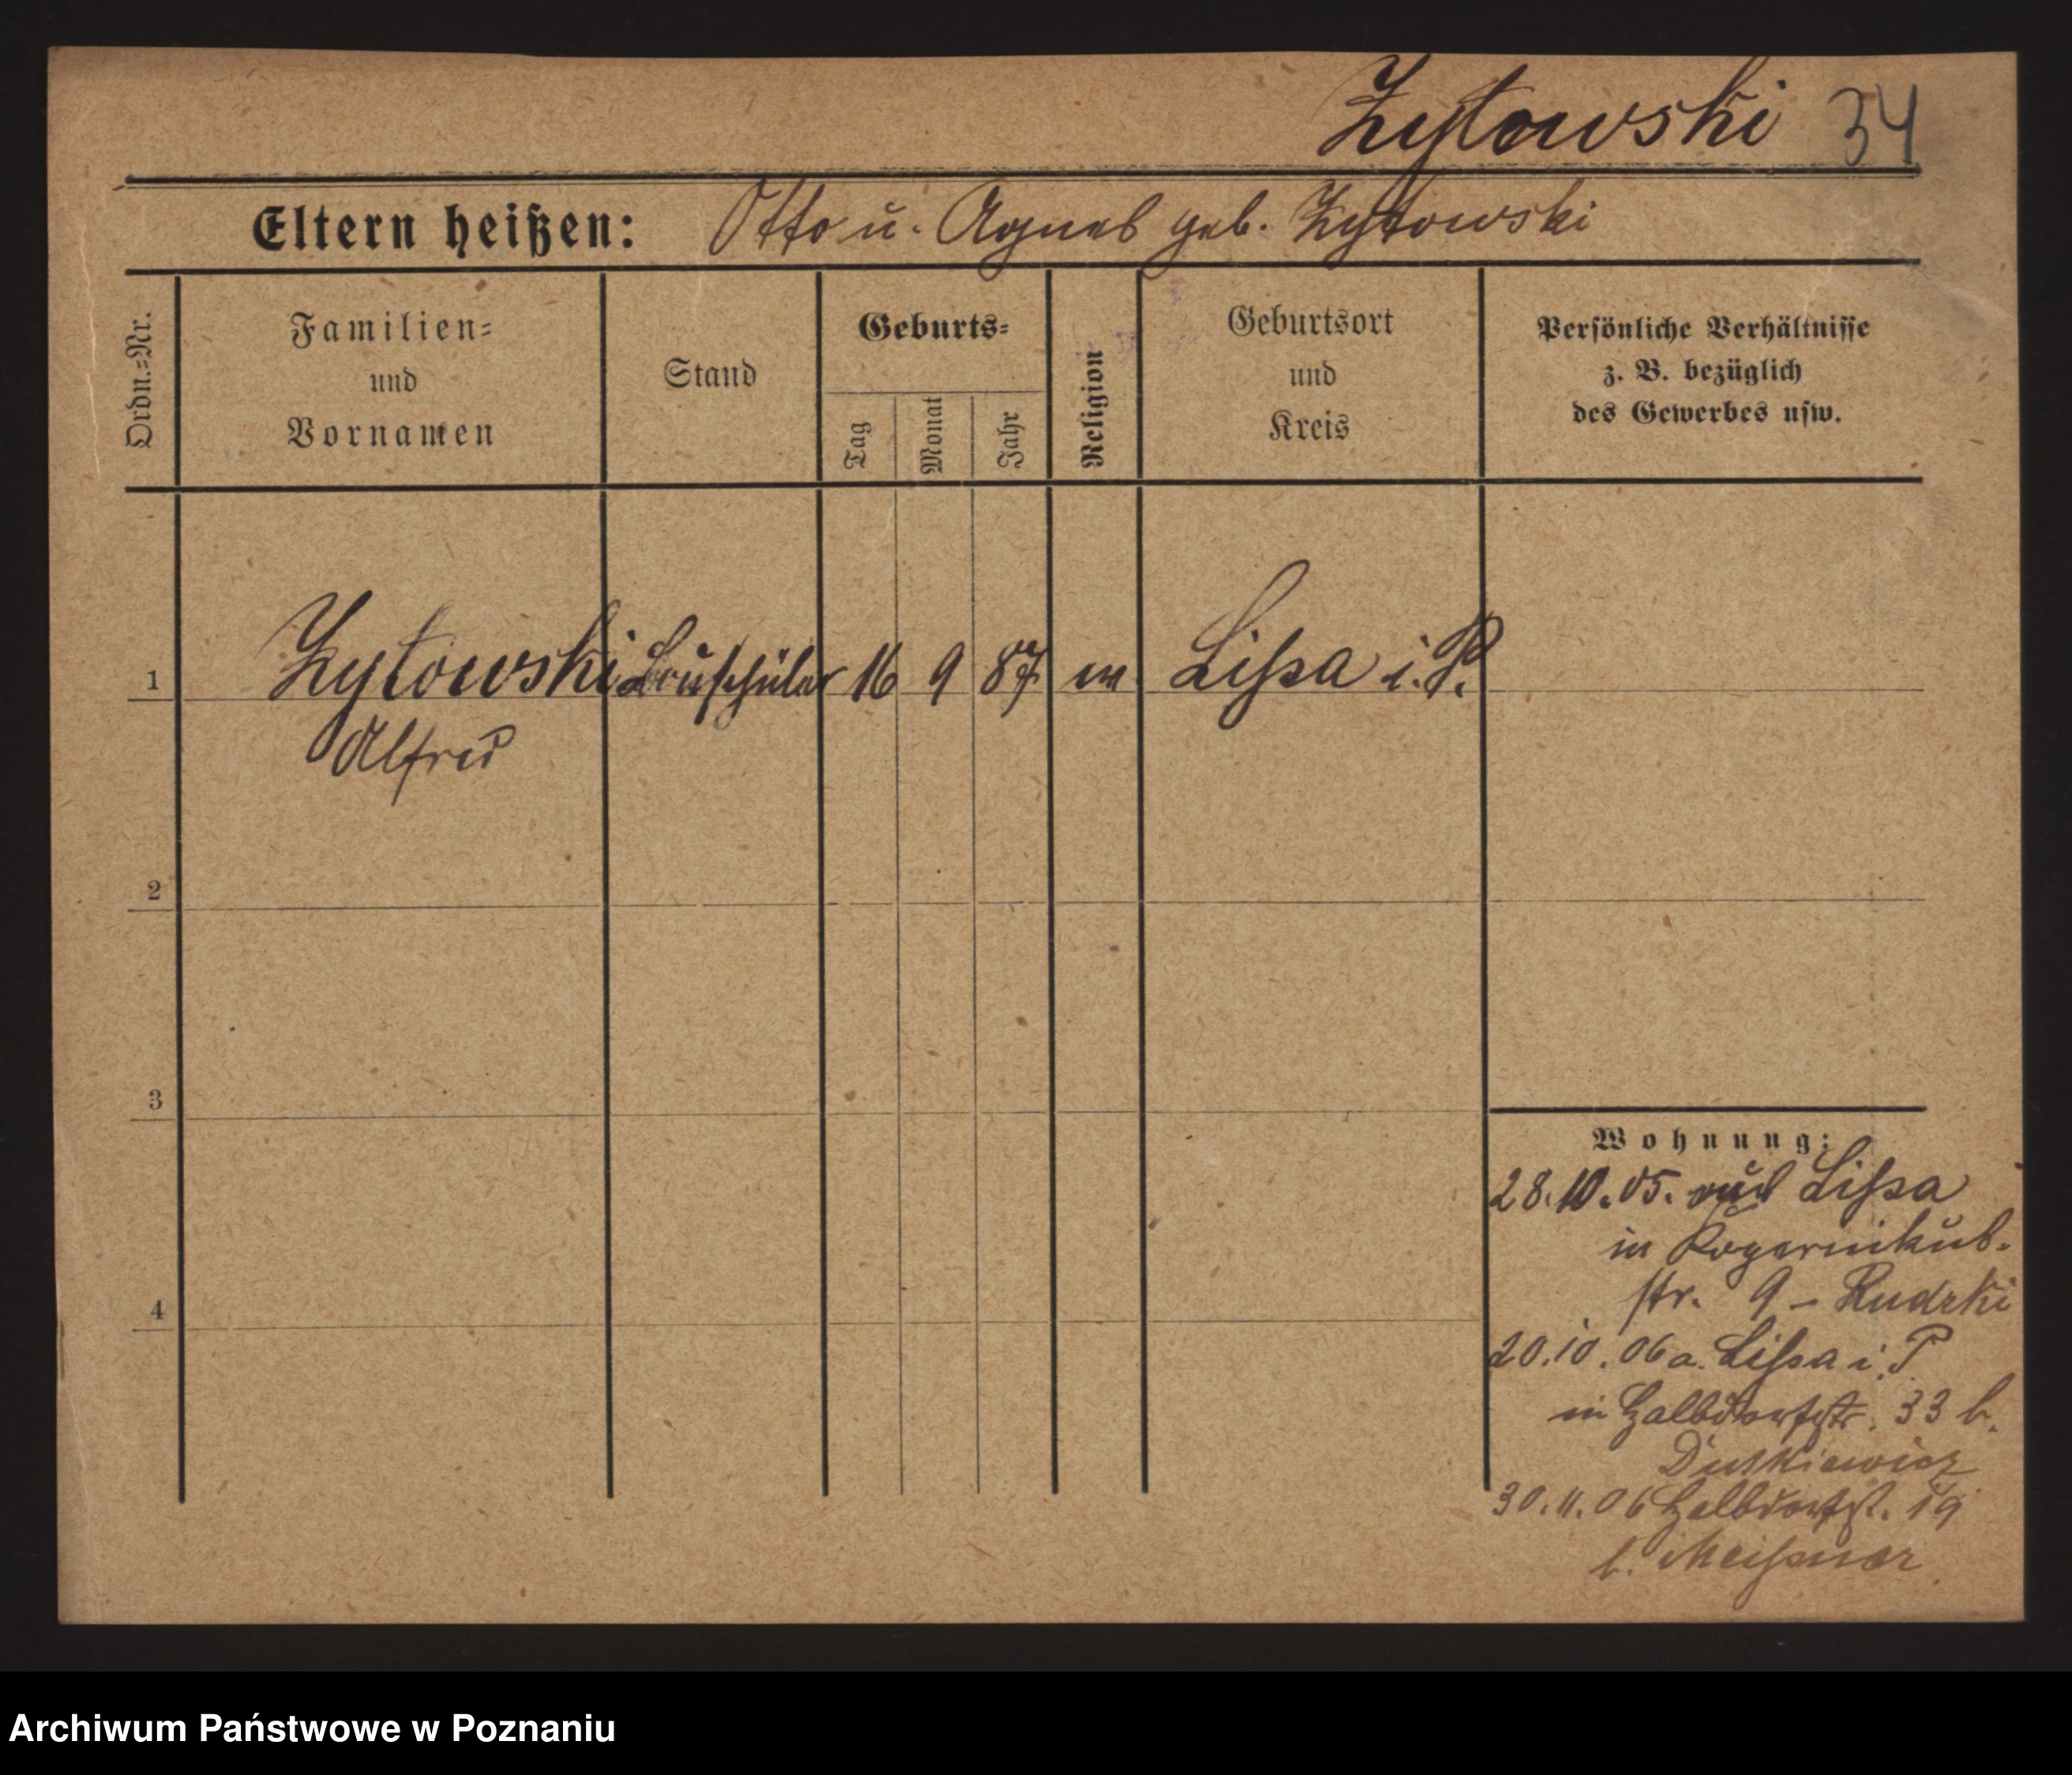 Zytowski 34
Eltern heißen: Otto u. Agnes geb. Zytowski
Ordn.=Nr.
Familien=
und
Vornamen
Stand
Geburts=
Tag
Monat
Jahr
Religion
Geburtsort
und
Kreis
Persönliche Verhältnisse
z. B. bezüglich
des Gewerbes usw.
1 Zytowski Bauschüler 16 9 87 Lissa i. P.
Alfred
2
3
4
Wohnung:
28.10.05. aus Lissa
in
str. 9 - Rudzki
20.10.06 a. Lissa i. P
in Halbdorfstr. 33 b.
Dutkiewicz
30.11.06 Halbdorfst. 19
b. Meissner
Archiwum Państwowe w Poznaniu